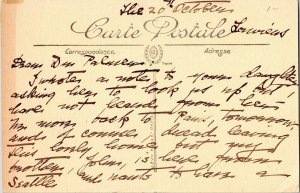 The 20th October
Carte Postale Louviers
Correspondance Adresse
Dear Dr. Palmer
I wrote a note to your daughter
asking her to look us up but
have not heard from her.
We move back to Paris, tomorrow
and of course dread leaving
this lovely home but my
brother, John, is here from
Seattle and wants to have a